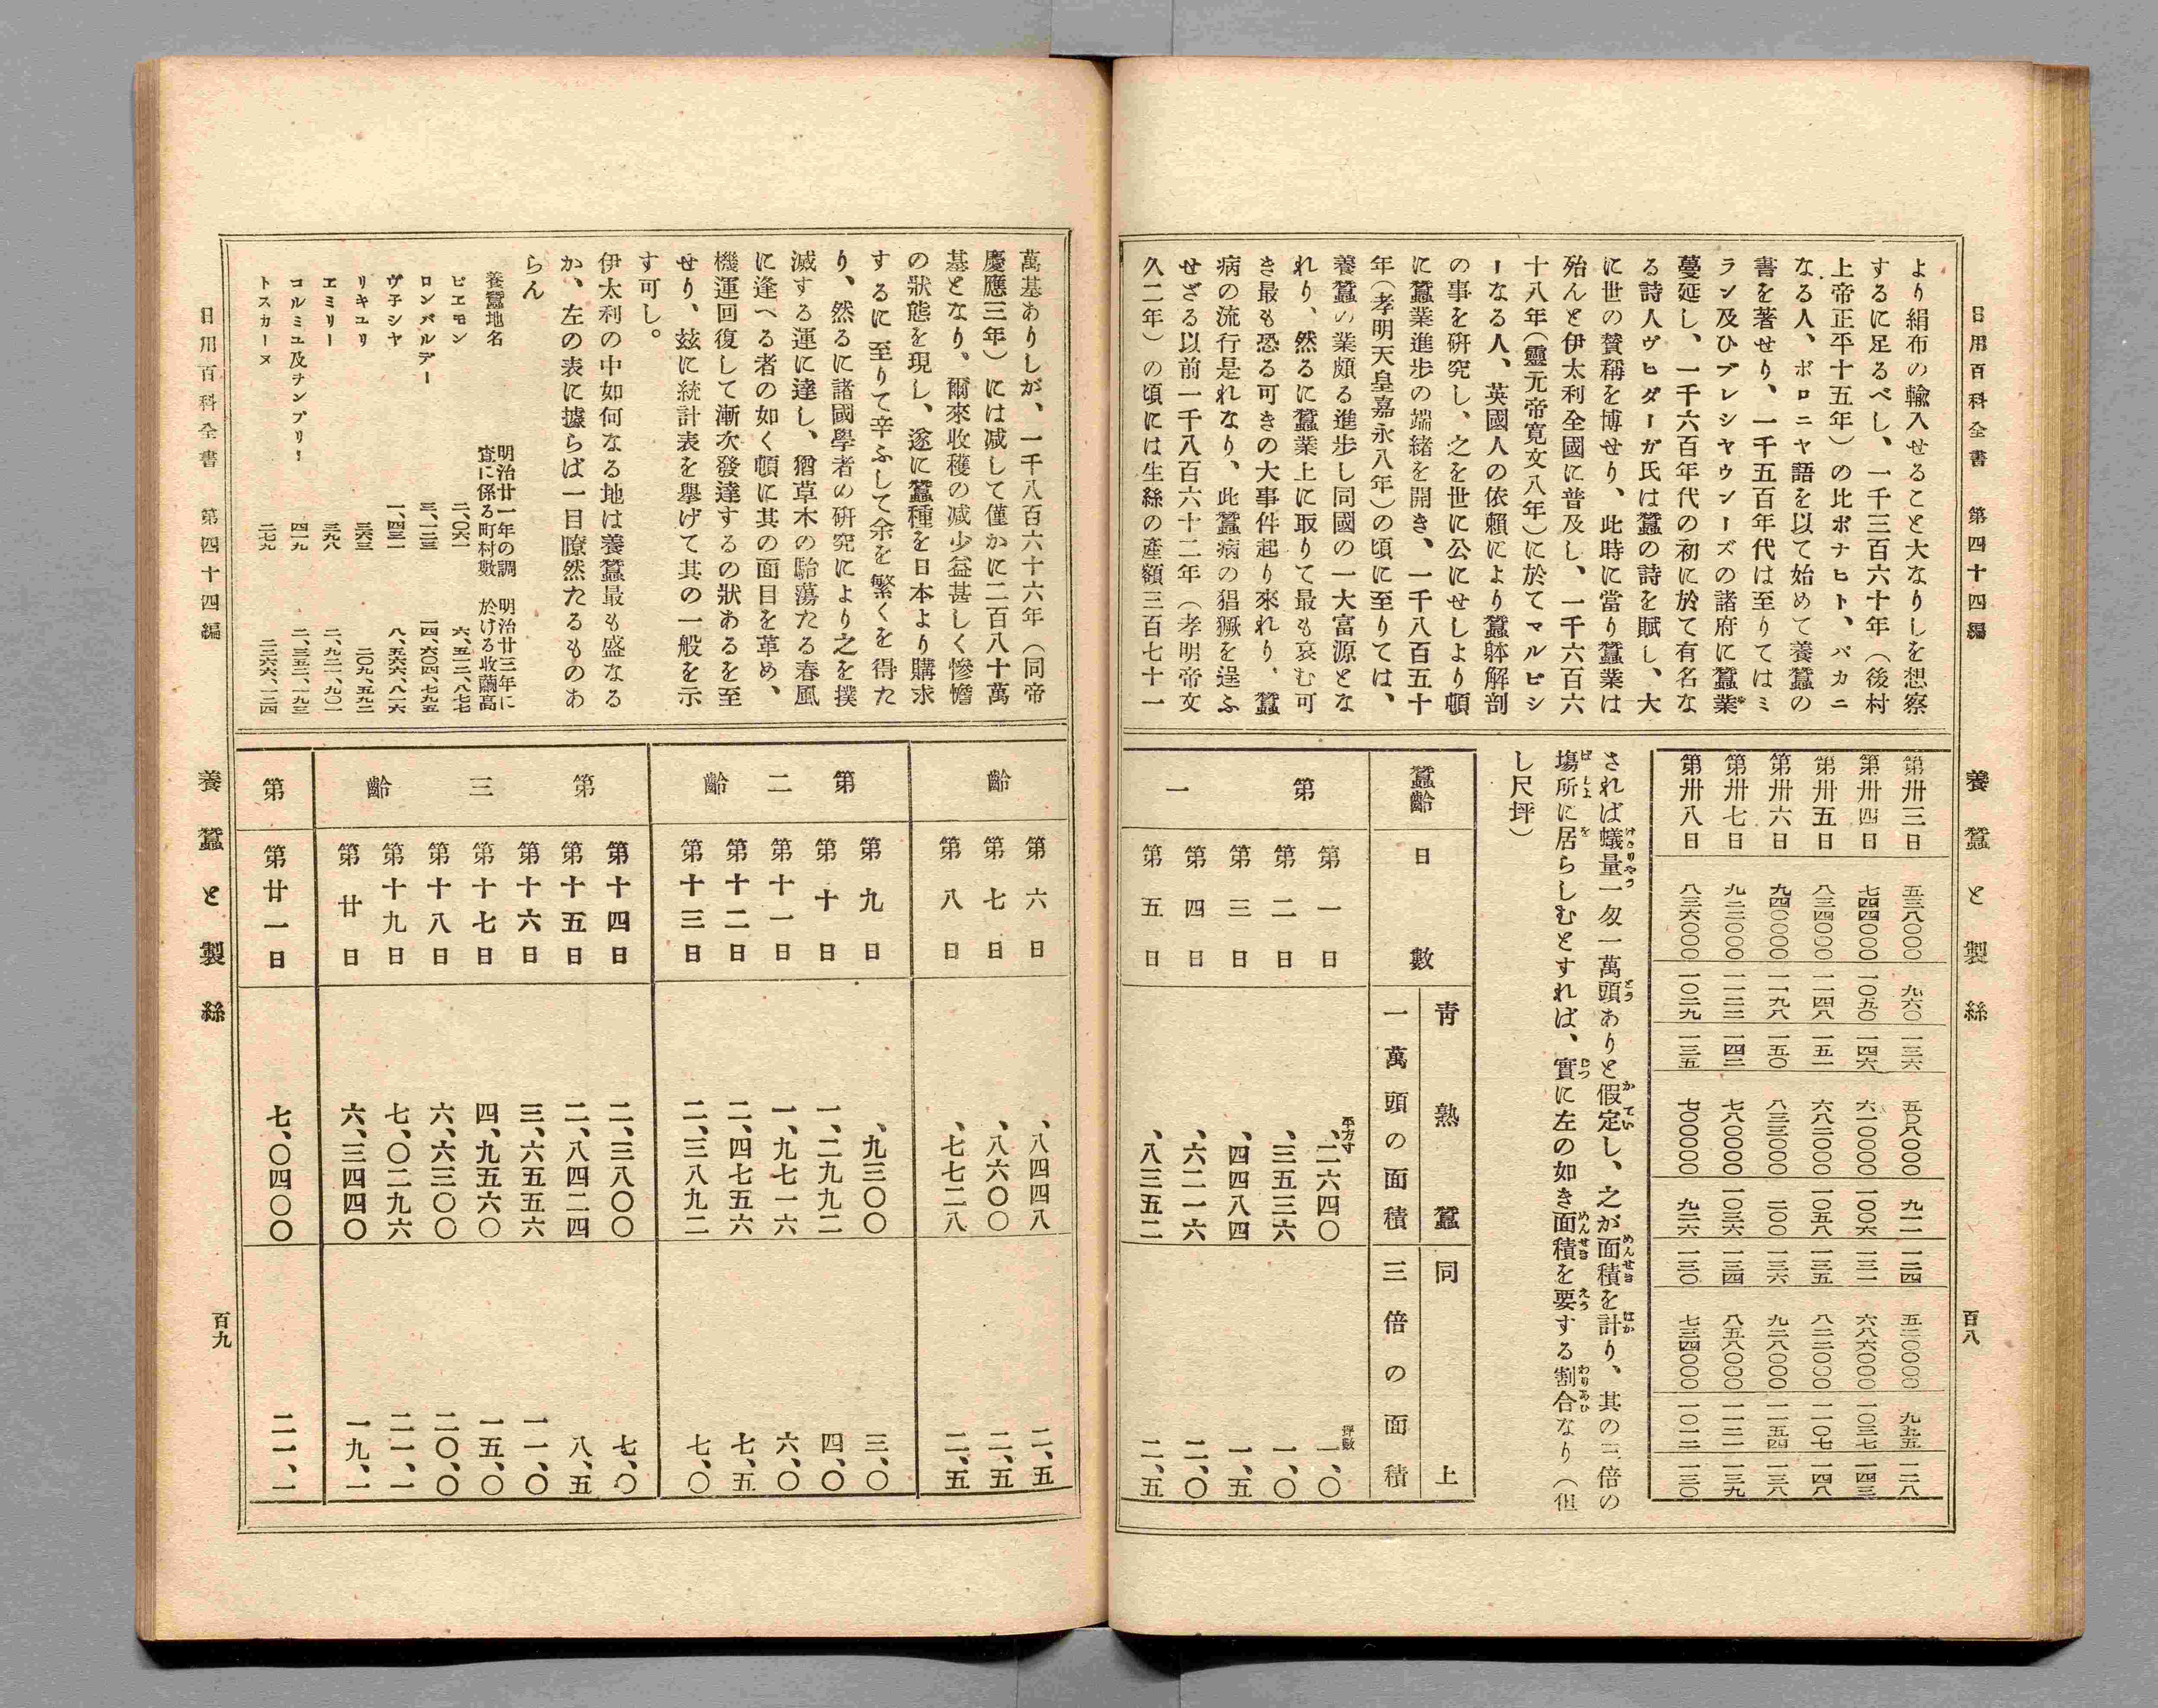 日用百科全書　第四十四編　養蠶と製絲　百八
より絹布の輸入せること大なりしを想察
するに足るべし、一千三百六十年（後村
上帝正平十五年）の比ボナヒト、パカニ
なる人、ボロニヤ語を以て始めて養蠶の
書を著せり、一千五百年代は至りてはミ
ラン及ひブレシヤウンーズの諸府に蠶業
蔓延し、一千六百年代の初に於て有名な
る詩人ヴヒダーガ氏は蠶の詩を賦し、大
に世の賛稱を博せり、此時に當り蠶業は
殆んど伊太利全國に普及し、一千六百六
十八年（靈元帝寛文八年）に於てマルピシ
ーなる人、英國人の依頼により蠶躰解剖
の事を研究し、之を世に公にせしより頓
に蠶業進歩の端緒を開き、一千八百五十
年（孝明天皇嘉永八年）の頃に至りては、
養蠶の業頗る進歩し同國の一大富源とな
れり、然るに蠶業上に取りて最も哀む可
き最も恐る可きの大事件起り來れり、蠶
病の流行是れなり、此蠶病の猖獗を逞ふ
せざる以前一千八百六十二年（孝明帝文
久二年）の頃には生絲の產額三百七十一
第卅三日　五三八〇〇〇　九六〇　一三六　五〇八〇〇〇　九一一　一二四　五二〇〇〇〇　九五五　一二八
第卅四日　七四四〇〇〇　一〇五〇　一四六　六一〇〇〇〇　一〇〇六　一三一　六八六〇〇〇　一〇三七　一四三
第卅五日　八三四〇〇〇　一一四八　一五一　六八二〇〇〇　一〇五八　一三五　八二二〇〇〇　一一〇七　一四八
第卅六日　九四〇〇〇〇　一一九八　一五〇　八三三〇〇〇　二〇〇　一三六　九二八〇〇〇　一一五四　一三八
第卅七日　九二三〇〇〇　一一二三　一四二　七八〇〇〇〇　一〇三六　一三四　八五八〇〇〇　一一二一　一三九
第卅八日　八三六〇〇〇　一〇二九　一三五　七〇〇〇〇〇　九二六　一三〇　七三四〇〇〇　一〇一二　一三〇
されば蟻量一匁一萬頭ありと假定し、之が面積を計り、其の三倍の
場所に居らしむとすれば、實に左の如き面積を要する割合なり（但
し尺坪）
蠶齡　日數　靑熟蠶一萬頭の面積　同上三倍の面積
第一
第一日　平方寸、二六四〇　坪數一、〇
第二日　、三五三六　一、〇
第三日　、四四八四　一、五
第四日　、六二一六　二、〇
第五日　、八三五二　二、五
萬基ありしが、一千八百六十六年（同帝
慶應三年）には減して僅かに二百八十萬
基となり、爾來收穫の減少益甚しく慘憺
の狀態を現し、遂に蠶種を日本より購求
するに至りて辛ふして余を繁くを得た
り、然るに諸國學者の研究により之を撲
滅する運に達し、猶草木の駘蕩たる春風
に逢へる者の如く頓に其の面目を革め、
機運回復して漸次發達するの狀あるを至
せり、玆に統計表を擧げて其の一般を示
す可し。
伊太利の中如何なる地は養蠶最も盛なる
か、左の表に據らば一目瞭然たるものあ
らん
養蠶地名　明治廿一年の調査に係る町村數　明治廿三年に於ける收繭高
ピエモン　二、〇六一　六、五一三、八七七
ロンバルデー　三、一二三　一四、六〇四、七九五
ヴ子シヤ　一、四三一　八、五六六、八一六
リキユリ　三六三　二〇九、五九二
エミリー　三九八　二、九二一、九〇一
コルミユ及ナンブリー　四一九　二、三五二、一九三
トスカーヌ　二七九　二二六六、一二四
齡
第六日　、八四四八　二、五
第七日　、八六〇〇　二、五
第八日　、七七二八　二、五
第二齡
第九日　、九三〇〇　三、〇
第十日　一、二九九二　四、〇
第十一日　一、九七一六　六、〇
第十二日　二、四七五六　七、五
第十三日　二、三八九二　七、〇
第三齡
第十四日　二、三八〇〇　七、〇
第十五日　二、八四二四　八、五
第十六日　三、六五五六　一一、〇
第十七日　四、九五六〇　一五、〇
第十八日　六、六三〇〇　二〇、〇
第十九日　七、〇二九六　二一、一
第廿日　六、三四四〇　一九、一
第
第廿一日　七、〇四〇〇　二一、一
日用百科全書　第四十四編　養蠶と製絲　百九